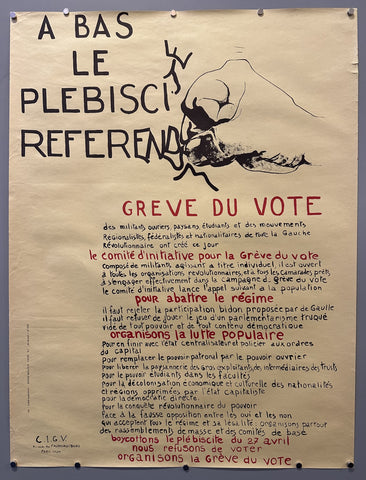 A BAS
LE
PLEBISCI
REFEREND
GREVE DU VOTE
des militants, ouvriers, paysans, étudiants et des mouvements
Régionalistes, fédéralistes et nationalitaires de toute la Gauche
Révolutionnaire ont créé ce jour
le comité d'initiative pour la Grève du vote
Composé de militants agissant à titre individuel, il est ouvert
à toutes les organisations révolutionnaires, et à tous les camarades prêts
à s'engager effectivement dans la campagne de Grève du vote
le comité d'initiative lance l'appel suivant à la population
pour abattre le régime
il faut rejeter la participation bidon proposée par de Gaulle
il faut refuser de jouer le jeu d'un parlementarisme truqué
vidé de tout pouvoir et de tout contenu démocratique
organisons la lutte populaire
Pour en finir avec l'état centralisateur et policier aux ordres
du capital
pour remplacer le pouvoir patronal par le pouvoir ouvrier
pour libérer la paysannerie des gros exploitants, des intermédiaires des trusts
Pour le pouvoir étudiant dans les facultés
pour la décolonisation économique et culturelle des nationalités
et régions opprimées par l'état capitaliste
pour la démocratie directe.
Pour la conquête révolutionnaire du pouvoir
Face à la fausse opposition entre les oui et les non
qui acceptent tous le régime et sa légalité: organisons partout
des rassemblements de masse et des comités de base
boycottons le plébiscite du 27 avril
nous refusons de voter
organisons la Grève du vote
C.I.G.V.